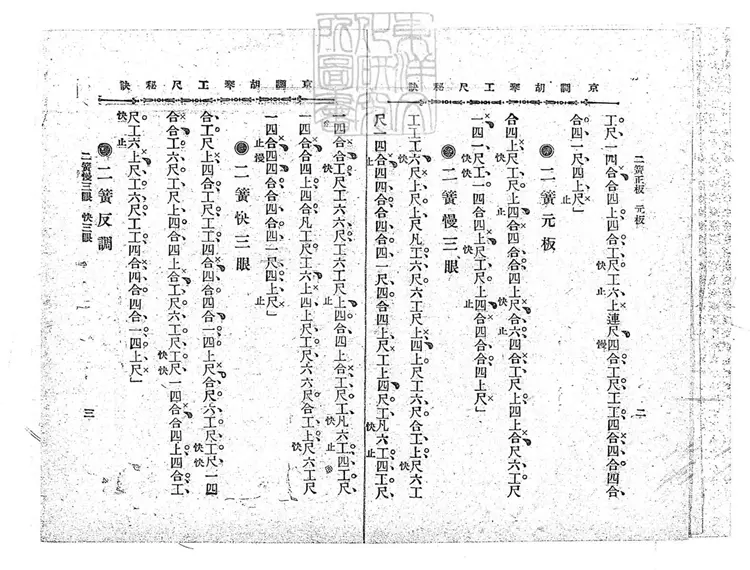 京調胡琴工尺秘訣
二簧正板 元板
二
工尺一四合合四上四合工尺工六上連尺四合工尺工工四合四合四合
合四一尺四上尺」
二簧元板
合四上尺工尺上四合四合合四上尺合六四合工尺上四上合尺六工尺
一四一尺工一四合四上尺工尺上四合四合合四上尺」
二簧慢三眼
工工工六尺上尺上尺凡工六尺六工尺上四上尺工六尺工合工上尺六工
尺一四合四四合合四合四一尺四合四合四上尺工上四尺工尺工凡六工四工尺
京調胡琴工尺秘訣
一四合合工尺工六六尺工六工尺上四合四上合工尺工凡六工四工尺
一四合合四上四合凡工尺工六上四上尺工尺六六尺合工上尺六工尺
一四合四四合四合四一尺四上尺」
二簧快三眼
合工尺上四合工尺工工四合四合四合一四上尺合尺六工尺工尺一四
合合工六尺工尺上四合四上合工尺六工尺工尺一四合合四上四合工
尺工六上尺工六尺工工四合四合四合一四上尺」
二簧反調
二簧慢三眼 快三眼
三